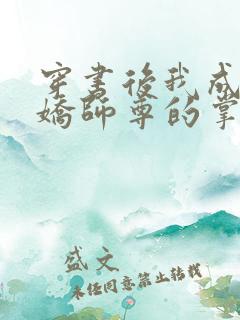 穿書後我成
嬌師尊的掌
盛文
未經同意禁止转载